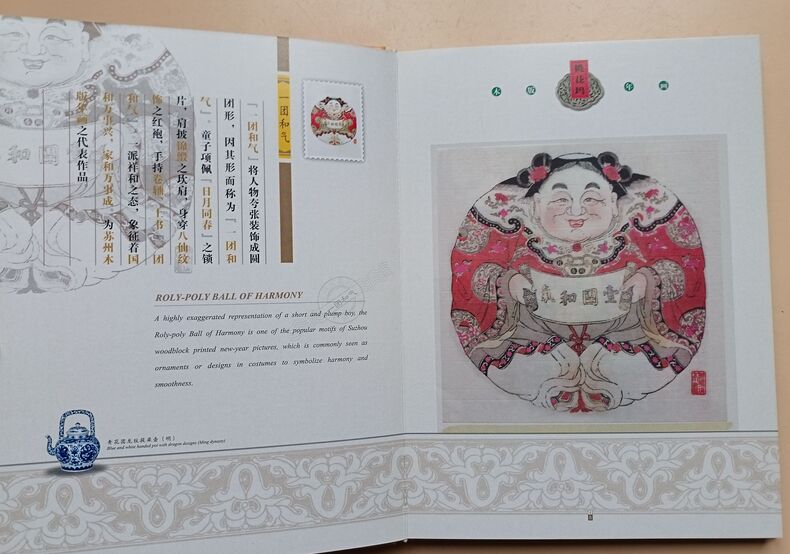 一团和气
「一团和气」将人物夸张装饰成圆
团形，因其形而称为「一团和
气」。童子项佩「日月同春」之锁
片，肩披锦缎之坎肩，身穿八仙纹
饰之红袍，手持卷轴，上书「一团
和气」，一派祥和之态，象征着国
和万事兴、家和万事成，为苏州木
版年画之代表作品
ROLY-POLY BALL OF HARMONY
A highly exaggerated representation of a short and plump boy, the
Roly-poly Ball of Harmony is one of the popular motifs of Suzhou
woodblock printed new-year pictures, which is commonly seen as
ornaments or designs in costumes to symbolize harmony and
smoothness.
青花团龙纹提梁壶（明）
Blue and white handed pot with dragon designs (Ming dynasty)
桃花坞
木版年画
壹團和氣